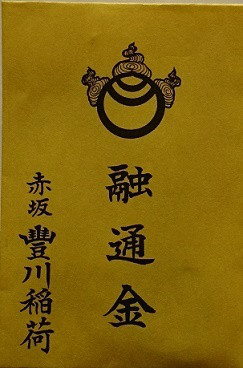 融通金
赤坂 豐川稲荷